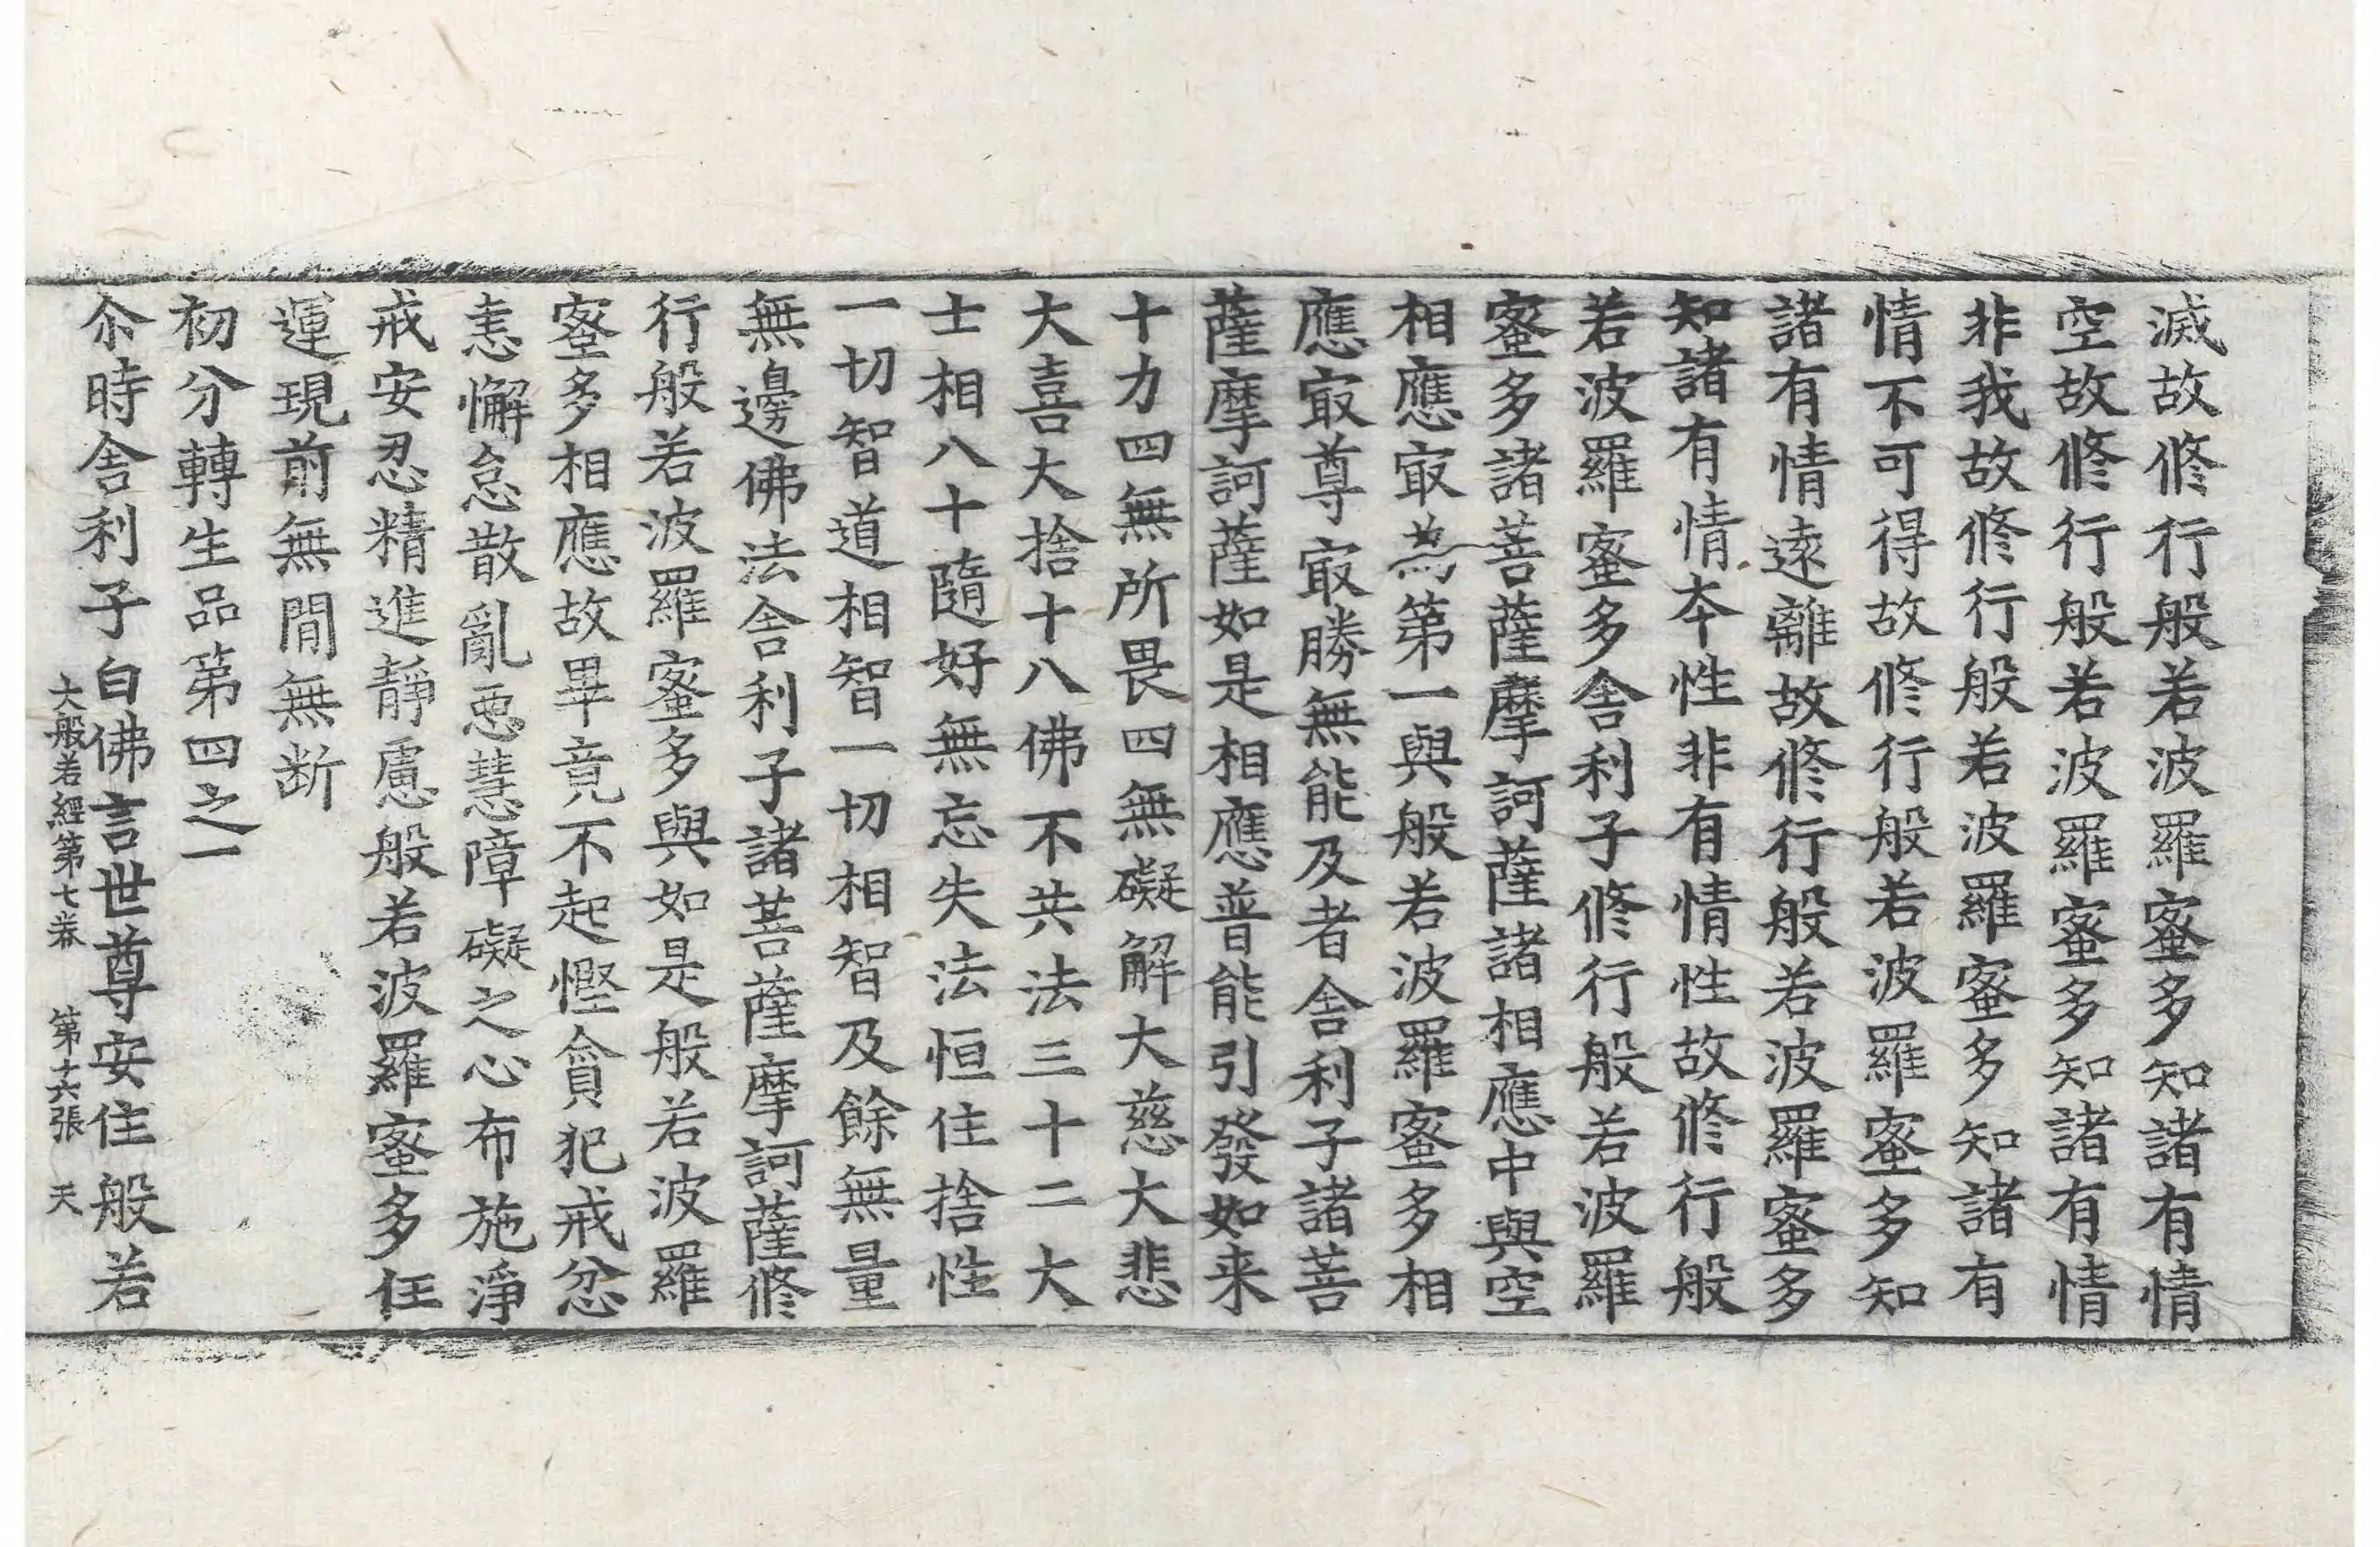 滅故修行般若波羅蜜多知諸有情
空故修行般若波羅蜜多知諸有情
非我故修行般若波羅蜜多知諸有
情不可得故修行般若波羅蜜多知
諸有情遠離故修行般若波羅蜜多
知諸有情夲性非有情性故修行般
若波羅蜜多舎利子修行般若波羅
蜜多諸菩薩摩訶薩諸相應中與空
相應㝡為第一與般若波羅蜜多相
應㝡尊㝡勝無能及者舎利子諸菩
薩摩訶薩如是相應普能引發如来
十力四無所畏四無礙解大慈大悲
大喜大捨十八佛不共法三十二大
士相八十隨好無忘失法恒住捨性
一切智道相智一切相智及餘無量
無邊佛法舎利子諸菩薩摩訶薩修
行般若波羅蜜多與如是般若波羅
蜜多相應故畢竟不起慳貪犯戒忿
恚懈怠散亂惡慧障礙之心布施淨
戒安忍精進靜慮般若波羅蜜多任
運現前無閒無断
初分轉生品第四之一
尒時舎利子白佛言世尊安住般若
大般若經第七卷 第十六張 天